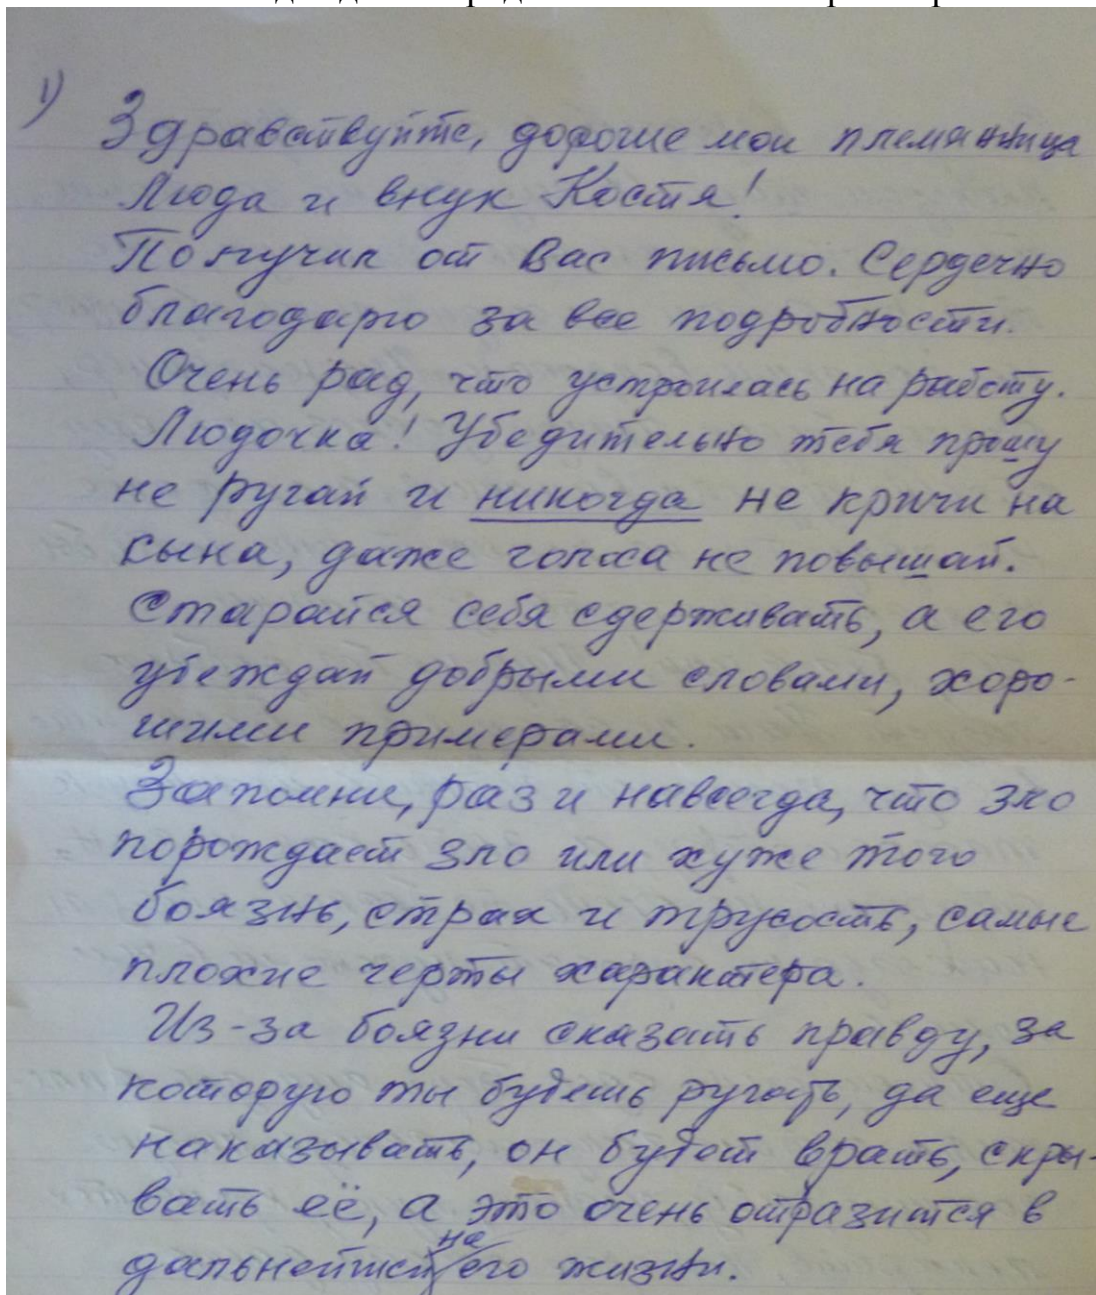 1) Здравствуйте, дорогие мои племянница
Люда и внук Костя!
Получил от Вас письмо. Сердечно
благодарю за все подробности.
Очень рад, что устроилась на работу.
Людочка! Убедительно тебя прошу
не ругай и никогда не кричи на
сына, даже голоса не повышай.
Старайся себя сдерживать, а его
убеждай добрыми словами, хоро-
шими примерами.
Запомни, раз и навсегда, что зло
порождает зло или хуже того
боязнь, страх и трусость, самые
плохие черты характера.
Из-за боязни сказать правду, за
которую ты будешь ругать, да еще
наказывать, он будет врать, скры-
вать её, а это очень отразится в
дальнейшем на его жизни.